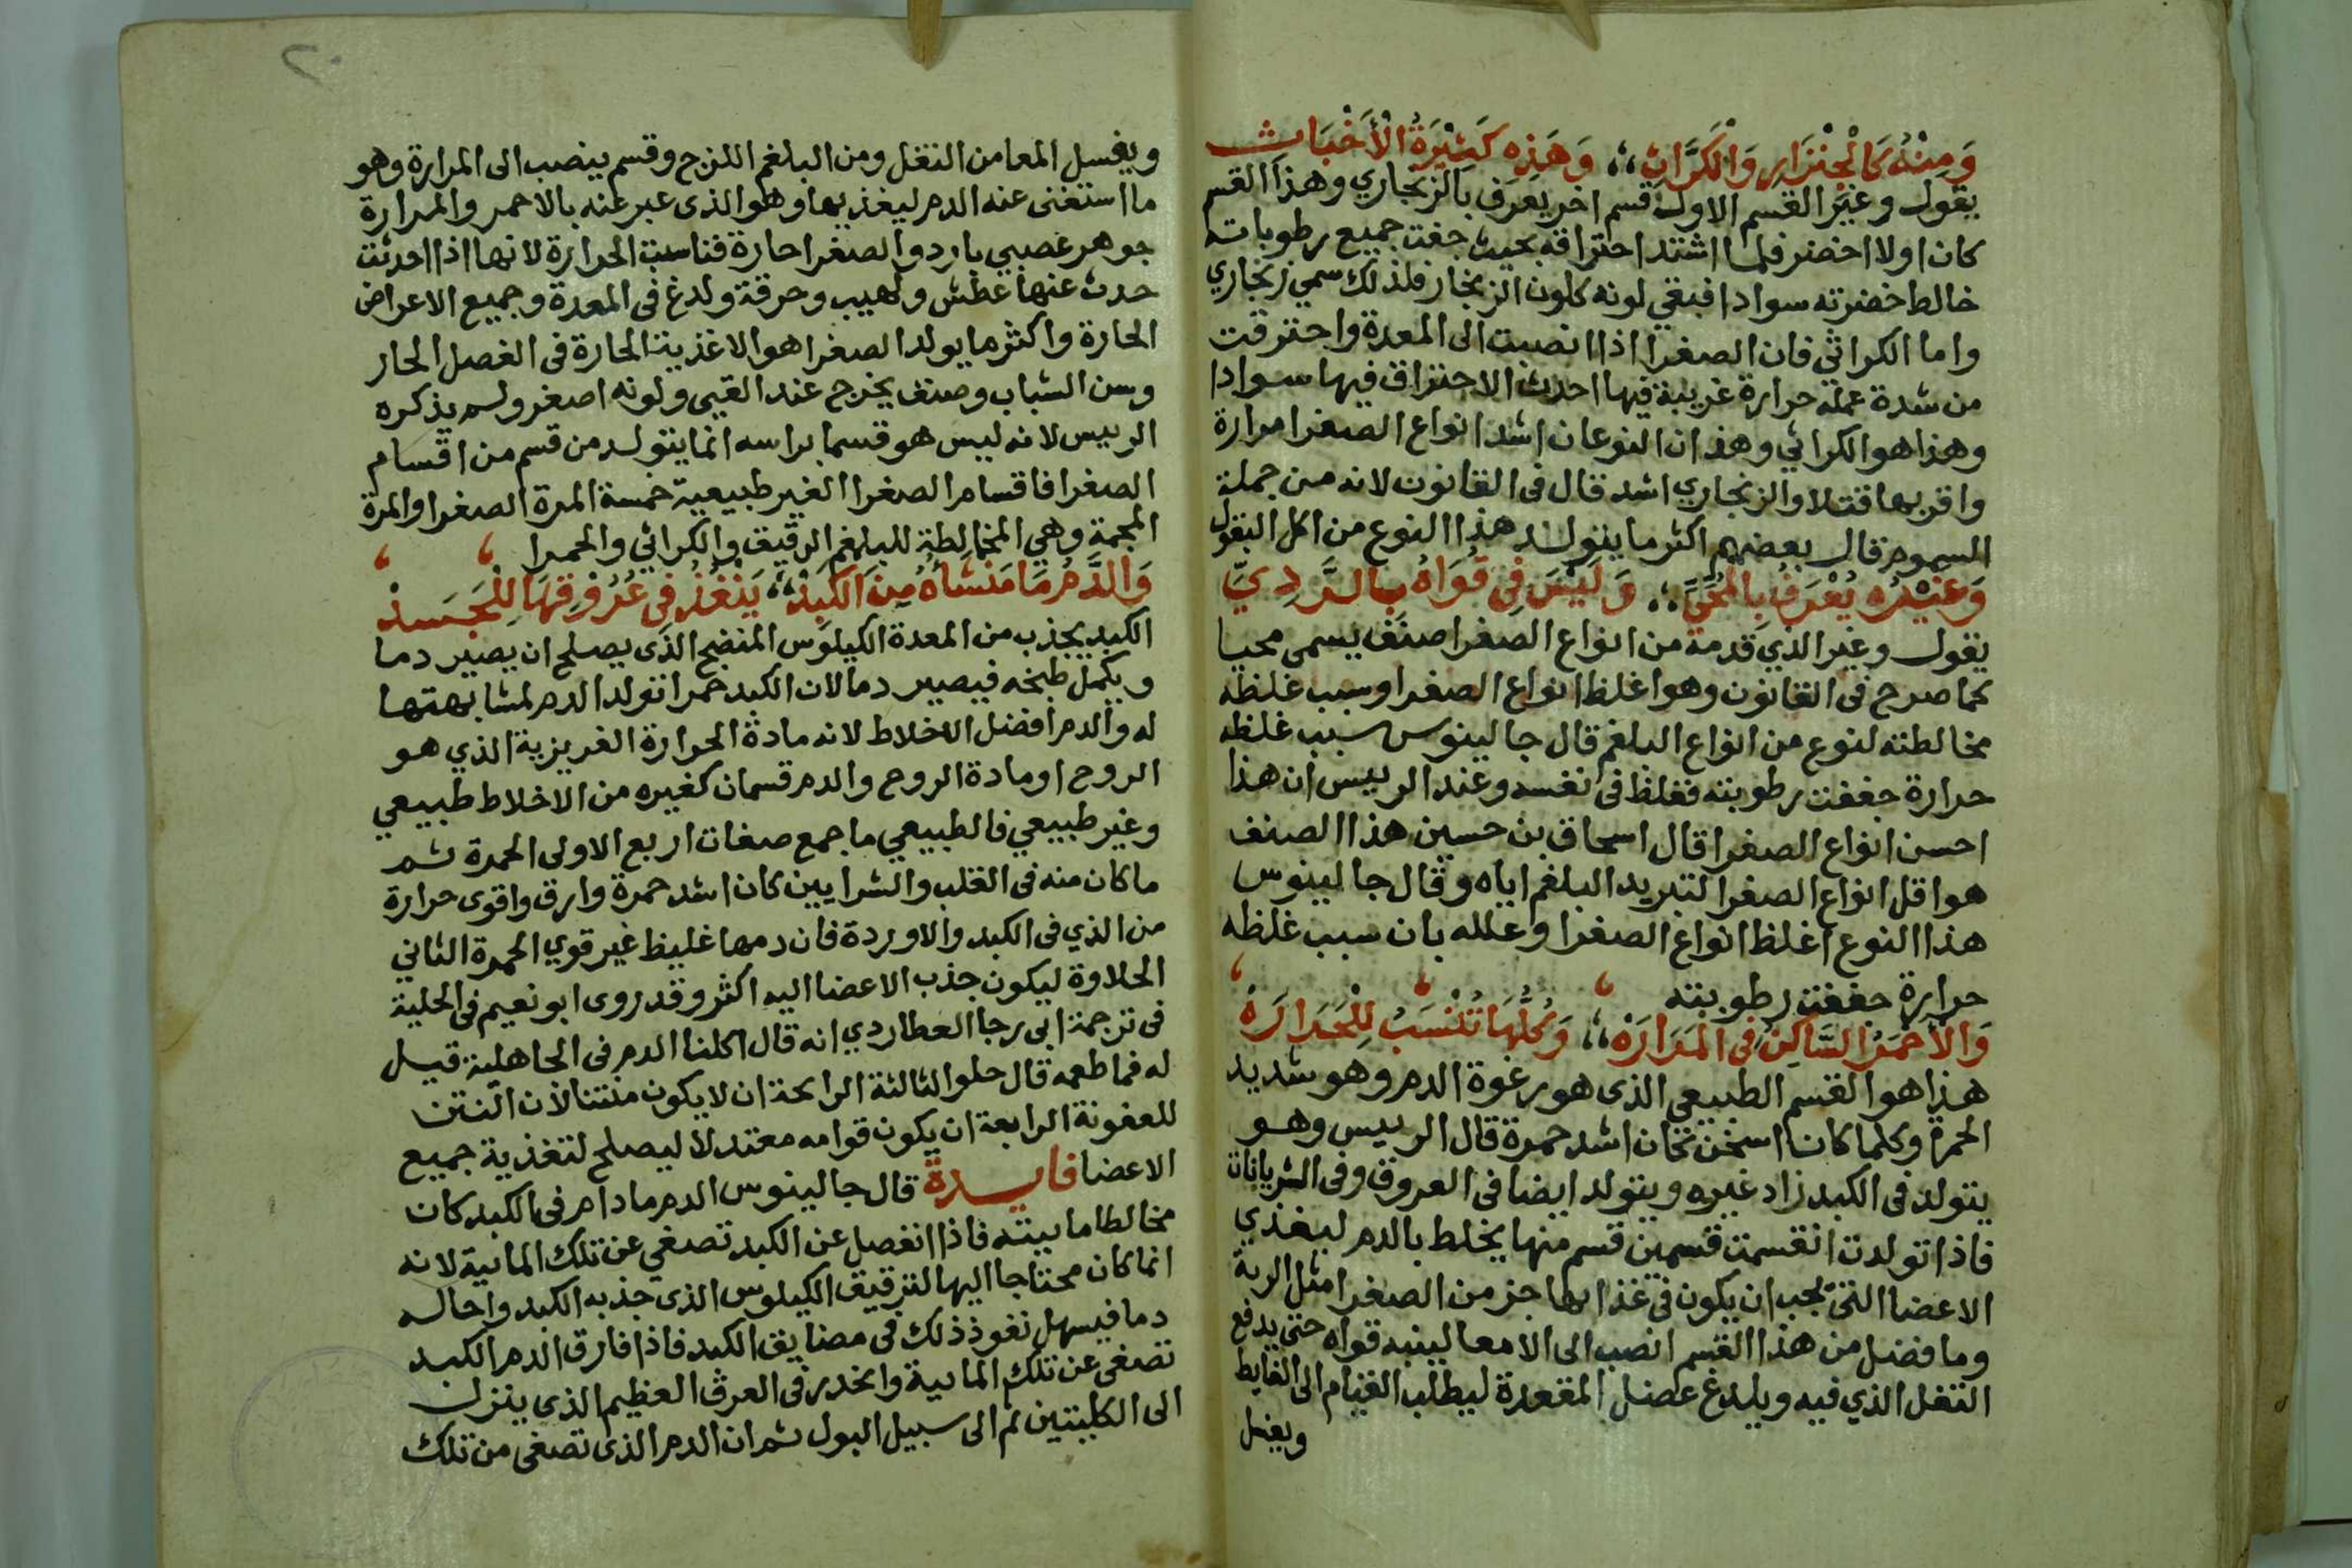 وَمِنْهُ كَالْجِنْزَارِ وَالكَرَّاثِ،، وَهَذِهِ كَثِيْرَةُ الْأَخْبَاثِ
يقول وغير القسم الاول قسم اخر يعرف بالزنجاري وهذا القسم
كان اولا اخضر فلما اشتد احتراقه بحيث جفت جميع رطوباته
خالط خضرته سوادا فبقي لونه كلون الزنجار فلذلك سمي زنجاري
واما الكراثي فان الصفرا اذا انصبت الى المعدة واحترقت
من شدة عمله حرارة غريبة فيها احدث الاحتراق فيها سوادا
وهذا هو الكراثي وهذان النوعان اشد انواع الصفرا مرارة
واقربها قتلا والزنجاري اشد قال في القانون لانه من جملة
السموم قال بعضهم اكثر ما يتولد هذا النوع من اكل البقول
وَغَيْرُه يُعْرَفُ بِالمُحِّيِّ،، وَلَيْسَ فِي قُوَاهُ بِالرَّدِيِّ
يقول وغير الذي قدمه من انواع الصفرا صنف يسمى محيا
كما صرح في القانون وهو اغلظ انواع الصفرا وسبب غلظه
مخالطته لنوع من انواع البلغم قال جالينوس سبب غلظه
حرارة جففت رطوبته فغلظ في نفسه وعند الرييس ان هذا
احسن انواع الصفرا قال اسحاق بن حسين هذا الصنف
هو اقل انواع الصفرا لتبريد البلغم اياه وقال جالينوس
هذا النوع اغلظ انواع الصفرا وعلله بان سبب غلظه
حرارة جففت رطوبته
وَالأَحْمَرُ السَّاكِنُ فِي المَرَارَهْ،، وَكُلُّهَا تُنْسَبُ لِلْحَرَارَهْ
هذا هو القسم الطبيعي الذى هو رغوة الدم وهو شديد
الحمرة وكلما كان اسخن كان اشد حمرة قال الرييس وهو
يتولد في الكبد زاد غيره ويتولد ايضا في العروق وفي الشريانات
فاذا تولدت انقسمت قسمين قسم منها يخلط بالدم ليغذي
الاعضا التي يجب ان يكون في غذايها جز من الصفرا مثل الرية
وما فضل من هذا القسم انصب الى الامعا لينبه قواه حتى يدفع
الثفل الذي فيه ويلدغ عضل المقعدة ليطلب القيام الى الغايط
ويغسل
٢٠
ويغسل المعا من الثفل ومن البلغم اللزج وقسم ينصب الى المرارة وهو
ما استغنى عنه الدم ليغذيها وهو الذى عبر عنه بالاحمر والمرارة
جوهر عصبي بارد والصفرا حارة فناسبت الحرارة لانها اذا احدثت
حدث عنها عطش ولهيب وحرقة ولدغ في المعدة وجميع الاعراض
الحارة واكثر ما يولد الصفرا هو الاغذية الحارة في الفصل الحار
وسن الشباب وصنف يخرج عند القيى ولونه اصفر ولم يذكره
الرييس لانه ليس هو قسما براسه انما يتولد من قسم من اقسام
الصفرا فاقسام الصفرا الغير طبيعية خمسة المرة الصفرا والمرة
المحمة وهي المخالطة للبلغم الرقيق والكراثي والحمرا
وَالدَّمُ مَا مَنْشَأهُ مِنَ الكَبِدْ،، يَنْفُذُ فِي عُرُوْقِهَا لِلْجَسَدْ
الكبد يجذب من المعدة الكيلوس المنضج الذى يصلح ان يصير دما
ويكمل طبخه فيصير دما لان الكبد حمرا تولد الدم لمشابهتها
له والدم افضل الاخلاط لانه مادة الحرارة الغريزية الذي هو
الروح او مادة الروح والدم قسمان كغيره من الاخلاط طبيعي
وغير طبيعي فالطبيعي ما جمع صفات اربع الاولى الحمرة ثم
ما كان منه في القلب والشرايين كان اشد حمرة وارق واقوى حرارة
من الذي في الكبد والاوردة فان دمها غليظ غير قوي الحمرة الثاني
الحلاوة ليكون جذب الاعضا اليه اكثر وقد روى ابو نعيم في الحلية
في ترجمة ابى رجا العطاردي انه قال اكلنا الدم في الجاهلية قيل
له فما طعمه قال حلو الثالثة الرايحة ان لا يكون منتنا لان النتن
للعفونة الرابعة ان يكون قوامه معتدلا ليصلح لتغذية جميع
الاعضا فايدة قال جالينوس الدم ما دام في الكبد كان
مخالطا ماييته فاذا انفصل عن الكبد تصفي عن تلك المايية لانه
انما كان محتاجا اليها لترقيق الكيلوس الذى جذبه الكبد واحاله
دما فيسهل نفوذ ذلك في مضايق الكبد فاذا فارق الدم الكبد
تصفى عن تلك المايية وانحدر في العرق العظيم الذى ينزل
الى الكليتين ثم الى سبيل البول ثم ان الدم الذى تصفى من تلك